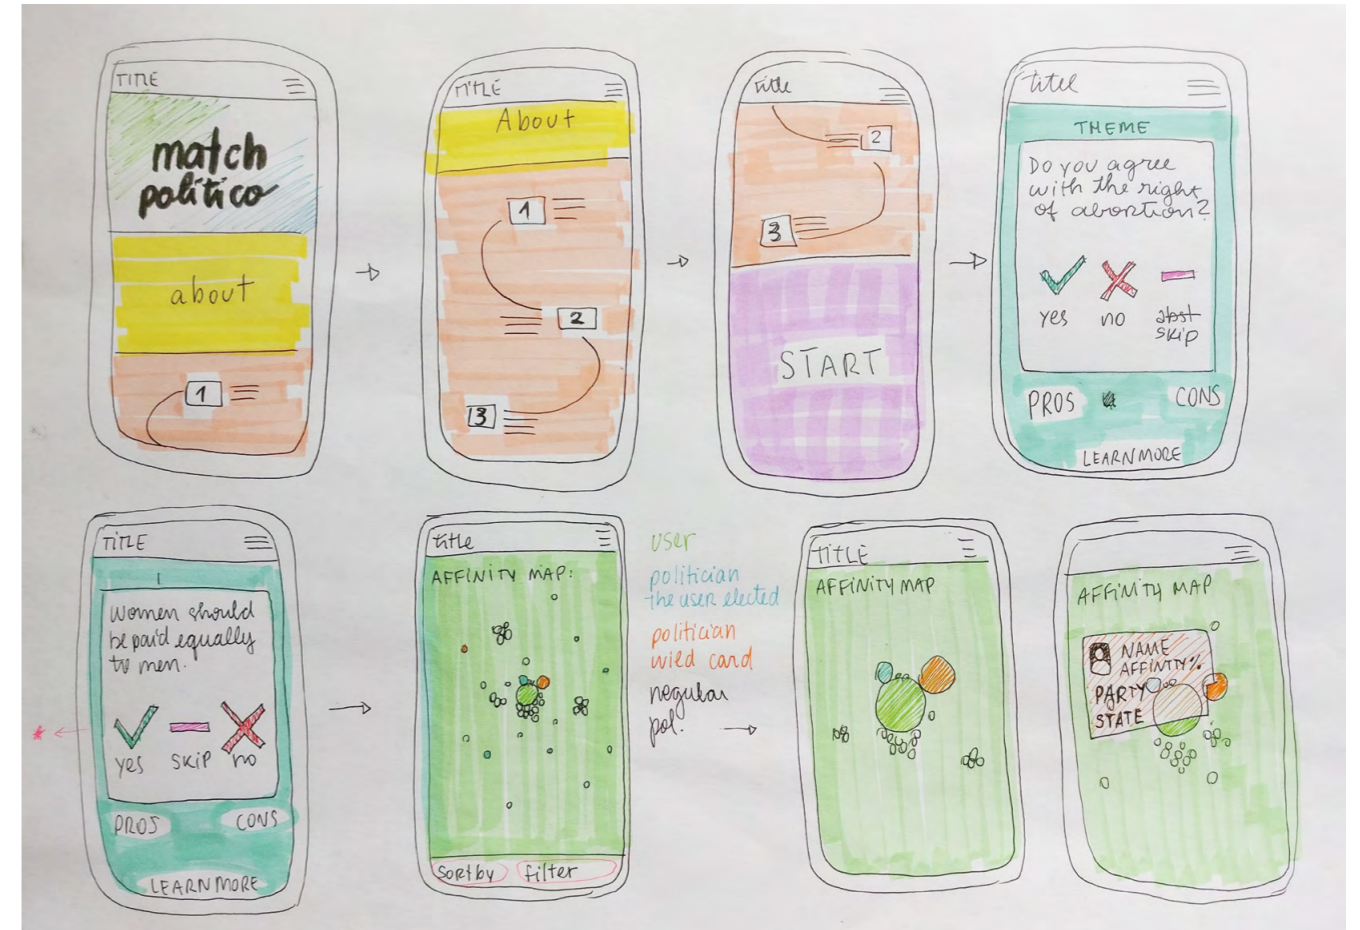 TITLE
match
político
about
1
TITLE
About
1
2
3
Title
2
3
START
Titel
THEME
Do you agree
with the right
of abortion?
yes no abst
skip
PROS CONS
LEARN MORE
TITLE
Women should
be paid equally
to men.
yes skip no
PROS CONS
LEARN MORE
title
AFFINITY MAP:
Sort by filter
user
politician
the user elected
politician
wild card
regular
pol.
TITLE
AFFINITY MAP
AFFINITY MAP
NAME
AFFINITY%
PARTY
STATE